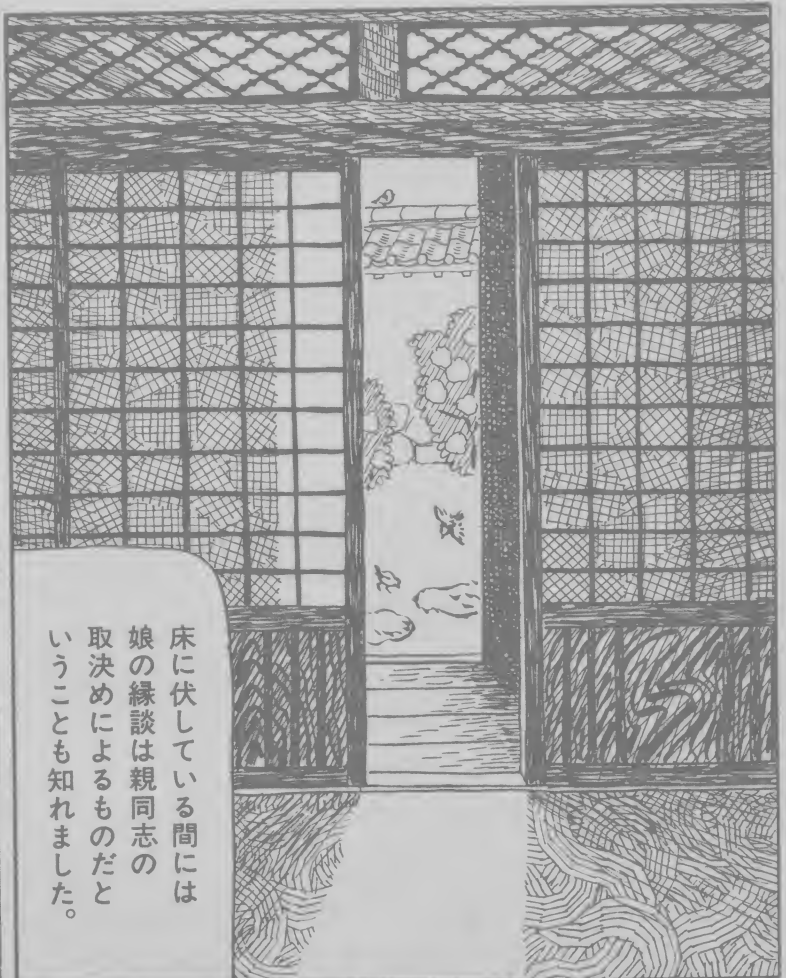 床に伏している間には
娘の縁談は親同志の
取決めによるものだと
いうことも知れました。